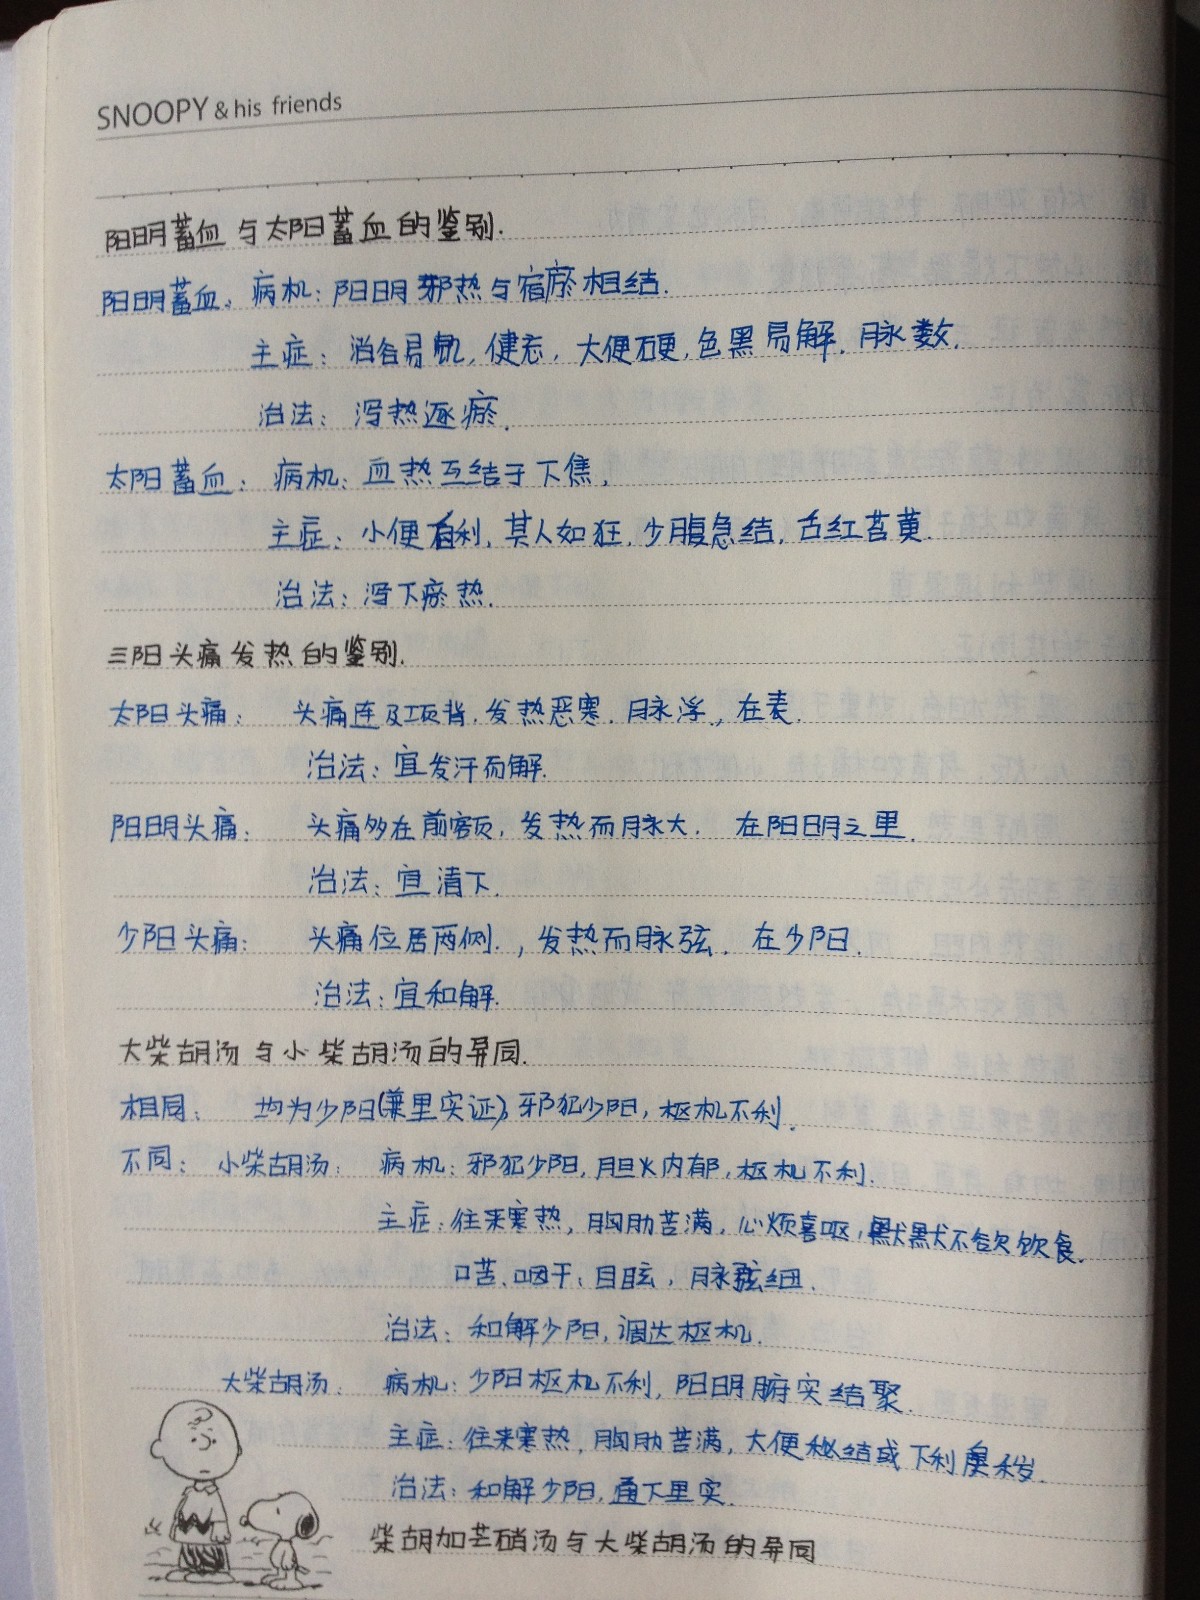 SNOOPY & his friends
阳明蓄血与太阳蓄血的鉴别.
阳明蓄血: 病机: 阳明邪热与宿瘀相结.
主症: 消谷易飢, 健忘, 大便硬, 色黑易解, 脉数.
治法: 泻热逐瘀.
太阳蓄血: 病机: 血热互结于下焦,
主症: 小便自利, 其人如狂, 少腹急结, 舌红苔黄.
治法: 泻下瘀热.
三阳头痛发热的鉴别.
太阳头痛: 头痛连及项背, 发热恶寒, 脉浮, 在表.
治法: 宜发汗而解.
阳明头痛: 头痛多在前额, 发热而脉大. 在阳明之里.
治法: 宜清下.
少阳头痛: 头痛位居两侧., 发热而脉弦. 在少阳.
治法: 宜和解.
大柴胡汤与小柴胡汤的异同.
相同: 均为少阳(兼里实证), 邪犯少阳, 枢机不利.
不同: 小柴胡汤: 病机: 邪犯少阳, 胆火内郁, 枢机不利.
主症: 往来寒热, 胸胁苦满, 心烦喜呕, 默默不欲饮食.
口苦. 咽干; 目眩, 脉弦细.
治法: 和解少阳, 调达枢机.
大柴胡汤. 病机: 少阳枢机不利, 阳明腑实结聚.
主症: 往来寒热, 胸胁苦满, 大便秘结或下利臭秽.
治法: 和解少阳, 通下里实.
柴胡加芒硝汤与大柴胡汤的异同